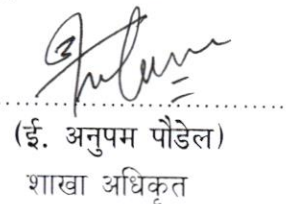 (ई. अनुपम पौडेल)
शाखा अधिकृत